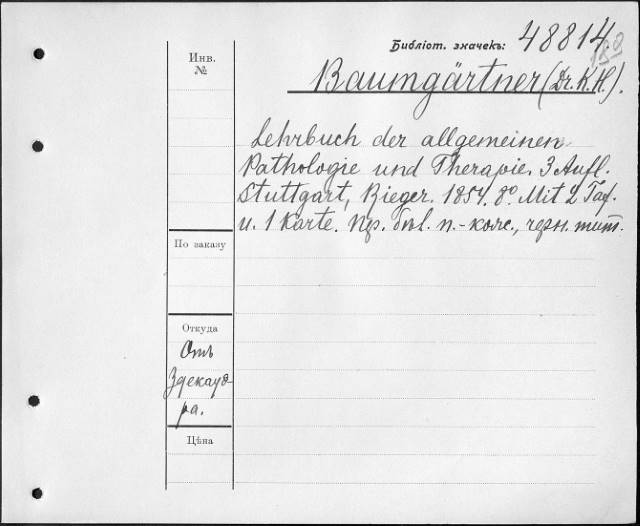 Библіот. значекъ: 48814
Инв. №
Baumgärtner (Dr. K. H.).
Lehrbuch der allgemeinen
Pathologie und Therapie. 3 Aufl.
Stuttgart, Rieger. 1854. 8º. Mit 2 Taf.
u. 1 Karte. Пер. п.-кож., черн. тит.
По заказу
Откуда
Отъ
Здекауэ-
ра.
Цѣна